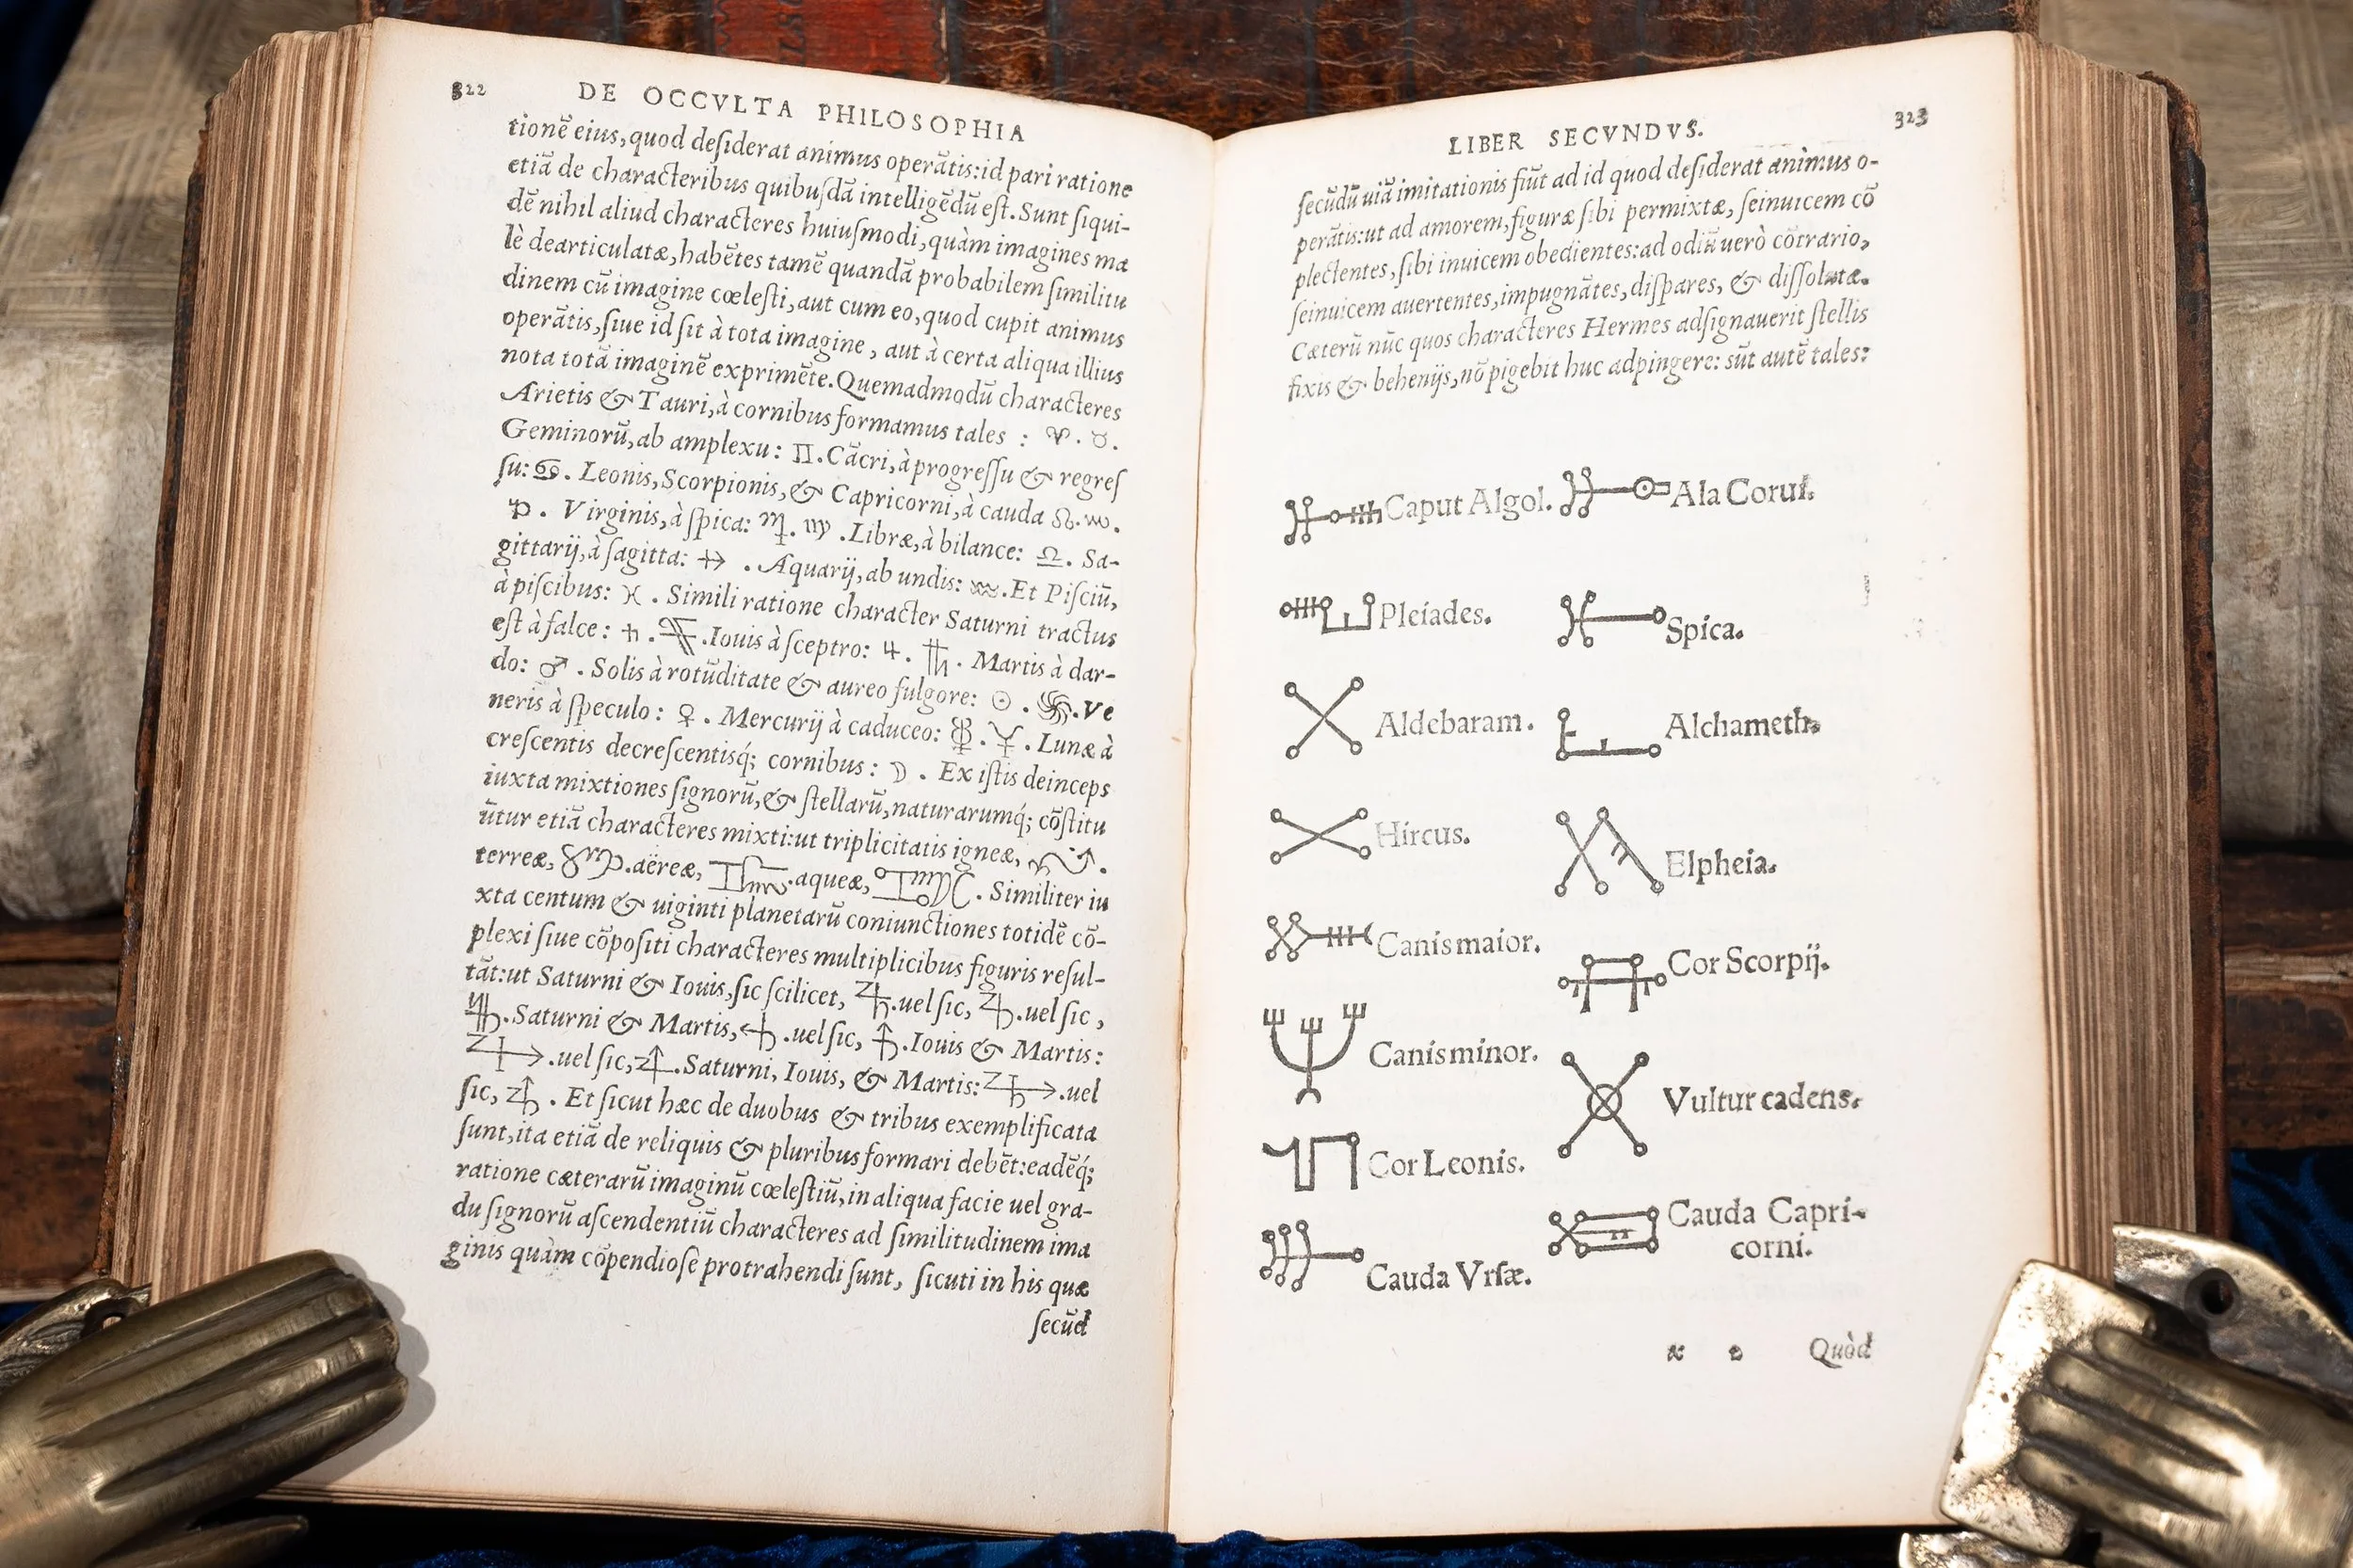 322
DE OCCVLTA PHILOSOPHIA
tionē eius, quod deſiderat animus operātis: id pari ratione
etiā de characteribus quibuſdā intelligēdū eſt. Sunt ſiqui-
dē nihil aliud characteres huiuſmodi, quàm imagines ma
lè dearticulatæ, habētes tamē quandā probabilem ſimilitu
dinem cū imagine cœleſti, aut cum eo, quod cupit animus
operātis, ſiue id ſit à tota imagine, aut à certa aliqua illius
nota totā imaginē exprimēte. Quemadmodū characteres
Arietis & Tauri, à cornibus formamus tales : ♈. ♉.
Geminorū, ab amplexu: ♊. Cācri, à progreſſu & regreſ
ſu: ♋. Leonis, Scorpionis, & Capricorni, à cauda ♌. ♏.
♑. Virginis, à ſpica: ♍. .Libræ, à bilance: ♎. Sa-
gittarij, à ſagitta: ♐ . Aquarij, ab undis: ♒. Et Piſciū,
à piſcibus: ♓ . Simili ratione character Saturni tractus
eſt à falce: ♄ . .Iouis à ſceptro: ♃. . Martis à dar-
do: ♂ . Solis à rotūditate & aureo fulgore: ☉ . .Ve
neris à ſpeculo : ♀ . Mercurij à caduceo: . . Lunæ à
creſcentis decreſcentisq́; cornibus : ☽ . Ex iſtis deinceps
iuxta mixtiones ſignorū, & ſtellarū, naturarumq́; cōſtitu
ūtur etiā characteres mixti: ut triplicitatis igneæ, .
terreæ, .aëreæ, .aqueæ, . Similiter iu
xta centum & uiginti planetarū coniunctiones totidē cō-
plexi ſiue cōpoſiti characteres multiplicibus figuris reſul-
tāt: ut Saturni & Iouis, ſic ſcilicet, .uel ſic, .uel ſic,
.Saturni & Martis, .uel ſic, .Iouis & Martis:
.uel ſic, .Saturni, Iouis, & Martis: .uel
ſic, . Et ſicut hæc de duobus & tribus exemplificata
ſunt, ita etiā de reliquis & pluribus formari debēt: eadēq́;
ratione cæterarū imaginū cœleſtiū, in aliqua facie uel gra-
du ſignorū aſcendentiū characteres ad ſimilitudinem ima
ginis quàm cōpendioſe protrahendi ſunt, ſicuti in his quæ
ſecūd
LIBER SECVNDVS.
323
ſecūdū uiā imitationis fiūt ad id quod deſiderat animus o-
perātis: ut ad amorem, figuræ ſibi permixtæ, ſeinuicem cō
plectentes, ſibi inuicem obedientes: ad odiū uerò cōtrario,
ſeinuicem auertentes, impugnātes, diſpares, & diſſolutæ.
Cæterū nūc quos characteres Hermes adſignauerit ſtellis
fixis & behenijs, nō pigebit huc adpingere: sūt autē tales:
Caput Algol.
Ala Corui.
Pleiades.
Spica.
Aldebaram.
Alchameth.
Hircus.
Elpheia.
Canis maior.
Cor Scorpij.
Canis minor.
Vultur cadens.
Cor Leonis.
Cauda Capri-
corni.
Cauda Vrſæ.
Quòd